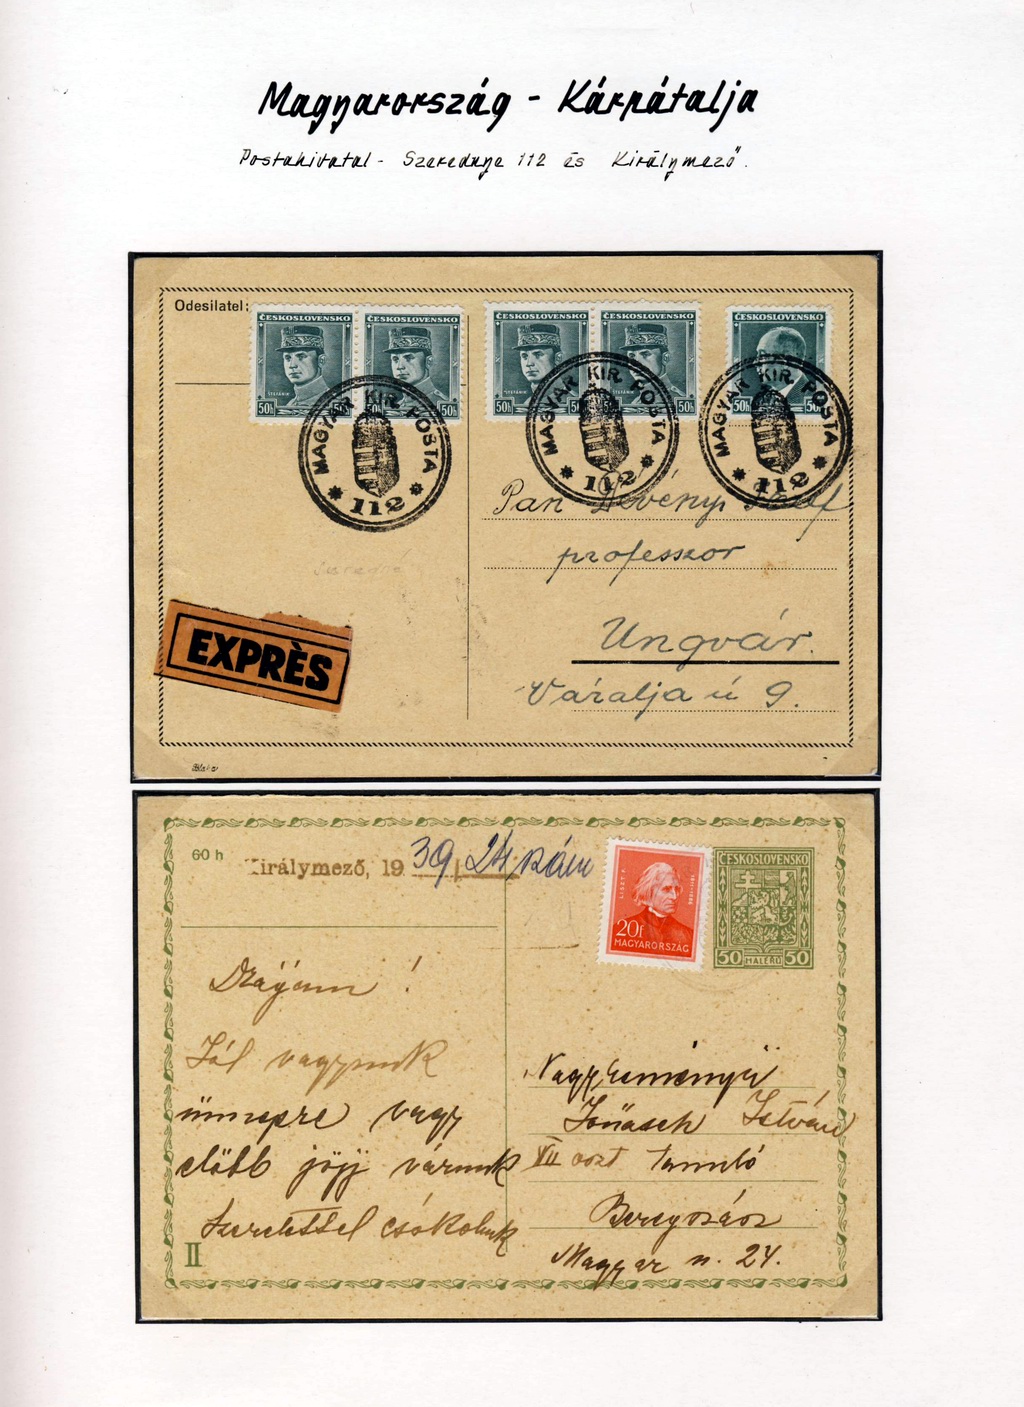 Magyarország - Kárpátalja
Postahivatal - Szerednye 112 és Királymező.
Odesilatel:
ČESKOSLOVENSKO ČESKOSLOVENSKO ČESKOSLOVENSKO ČESKOSLOVENSKO ČESKOSLOVENSKO
ŠTEFÁNIK ŠTEFÁNIK
50h 50h 50h 50h 50h 50h
MAGYAR KIR. POSTA
* 112 *
MAGYAR KIR. POSTA
* 112 *
MAGYAR KIR. POSTA
* 112 *
Pan Dévényi József
professzor
Ungvár.
Váralja ú 9.
EXPRÈS
60 h
Királymező, 19 39
LISZT F.
20f
MAGYARORSZÁG
ČESKOSLOVENSKO
50 HALÉŘŮ 50
Drágám !
Jól vagyunk
ünnepre vagy
előbb jöjj várunk
Szeretettel csókolunk
II
Nagyreményű
István
VII oszt tanuló
Beregszász
Magyar u. 24.